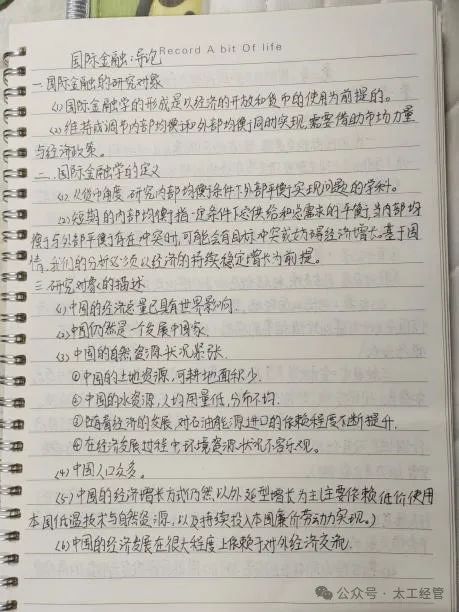 Record A bit Of life
国际金融·导论
一.国际金融的研究对象
(1)国际金融学的形成是以经济的开放和货币的使用为前提的。
(2)维持或调节内部均衡和外部均衡同时实现,需要借助市场力量
与经济政策。
二.国际金融学的定义
(1)从货币角度研究内部均衡条件下外部平衡实现问题的学科。
(2)短期的内部均衡指一定条件下总供给和总需求的平衡,当内部均
衡与外部平衡存在冲突时,可能会有目标冲突或妨碍经济增长。基于国
情,我们的分析必须以经济的持续稳定增长为前提。
三.研究对象的描述
(1)中国的经济总量已具有世界影响.
(2)中国仍然是一个发展中国家.
(3)中国的自然资源状况紧张.
①中国的土地资源,可耕地面积少.
②中国的水资源,人均用量低,分布不均.
③随着经济的发展,对石油能源进口的依赖程度不断提升.
④在经济发展过程中,环境资源状况不容乐观。
(4)中国人口众多。
(5)中国的经济增长方式仍然以外延型增长为主(主要依赖低价使用
本国低温技术与自然资源,以及持续投入本国廉价劳动力实现。)
(6)中国的经济发展在很大程度上依赖于对外经济交流.
公众号·太工经管